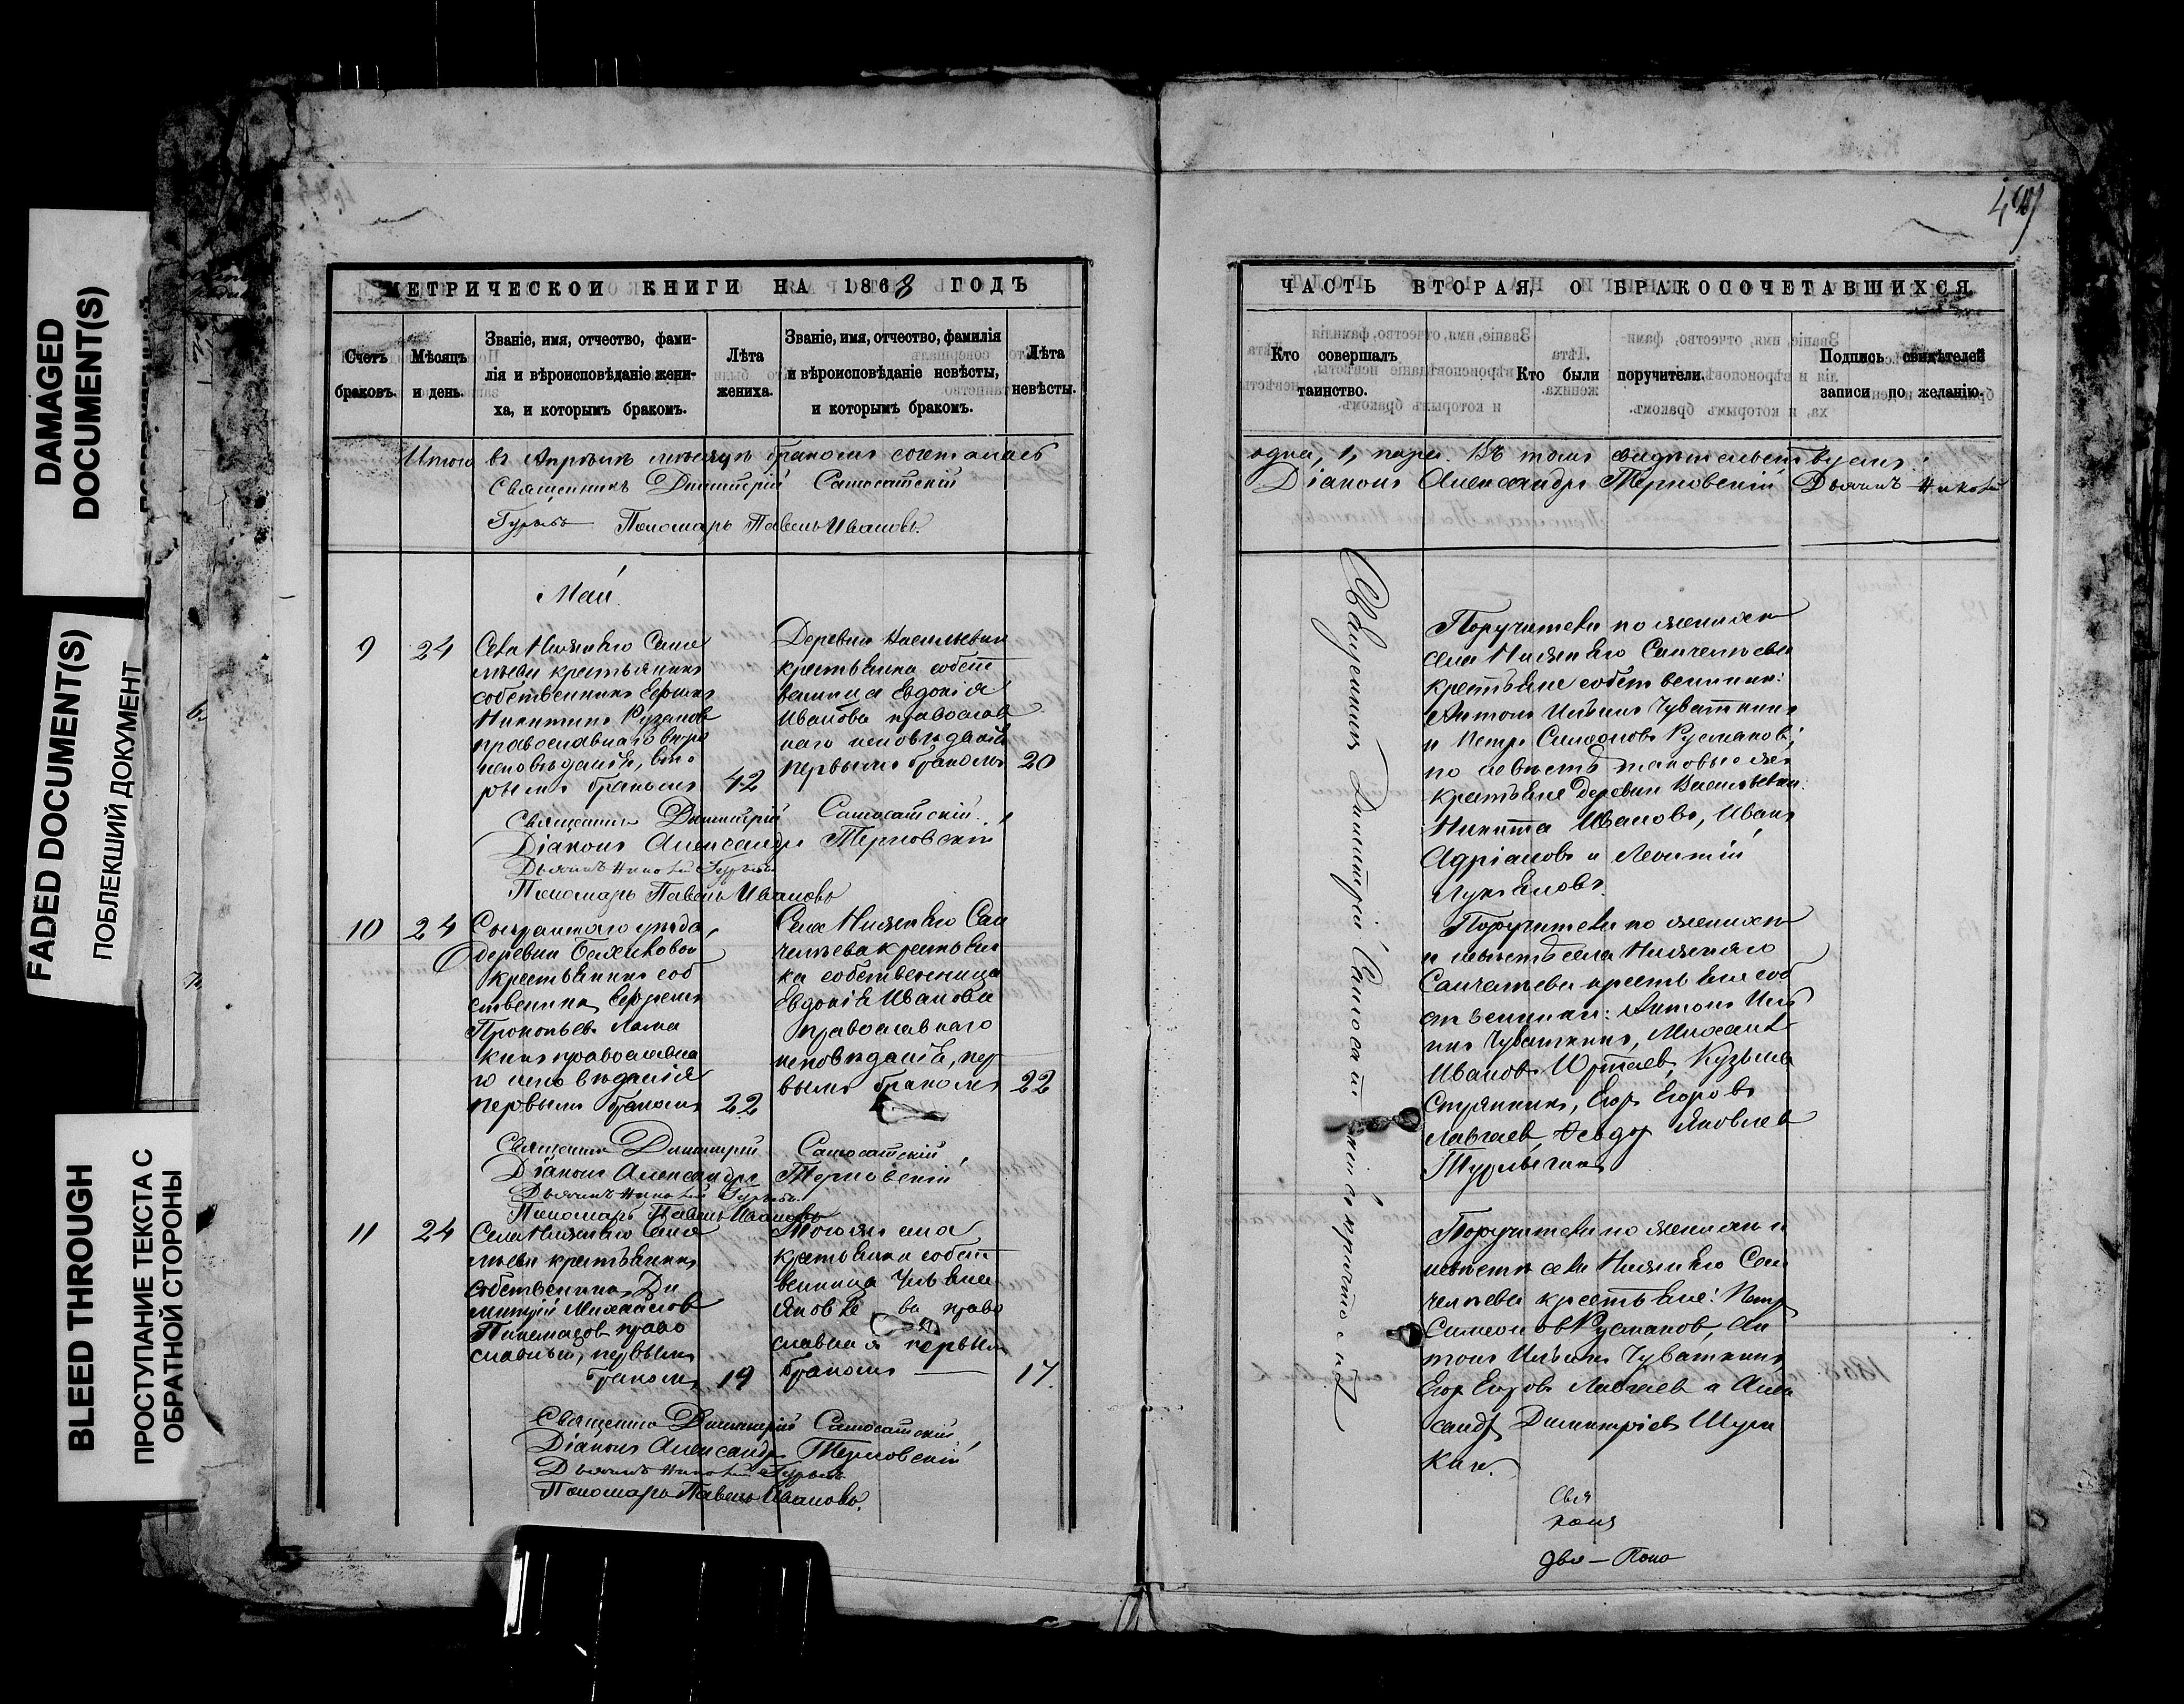 DAMAGED
DOCUMENT(S)
FADED DOCUMENT(S)
ПОБЛЕКШИЙ ДОКУМЕНТ
BLEED THROUGH
ПРОСТУПАНИЕ ТЕКСТА С
ОБРАТНОЙ СТОРОНЫ
МЕТРИЧЕСКОЙ КНИГИ НА 1868 ГОДЪ
Счетъ
браковъ.
Мѣсяцъ
и день.
Званіе, имя, отчество, фами-
лія и вѣроисповѣданіе жени-
ха, и которымъ бракомъ.
Лѣта
жениха.
Званіе, имя, отчество, фамилія
и вѣроисповѣданіе невѣсты,
и которымъ бракомъ.
Лѣта
невѣсты.
Итого въ Апрѣлѣ мѣсяцѣ бракомъ сочеталась
Священникъ Димитрій Самосатскій
Гурьевъ Пономарь Павелъ Ивановъ.
Май.
9
24
Села Нижняго Санче
лѣева крестьянинъ
собственникъ
Никитинъ
православнаго вѣро
исповѣданія, вто
рымъ бракомъ
42
Деревни Васильевки
крестьянка собст
венница Евдокія
Иванова православ
наго исповѣданія
первымъ бракомъ
20
Священникъ Димитрій Самосатскій
Діаконъ Александръ Терновскій
Дьячекъ Николай Гурьевъ
Пономарь Павелъ Ивановъ
10
24
Сызранскаго уѣзда,
деревни
крестьянинъ соб
ственникъ Ефремъ
Прокопьевъ Лома
кинъ православна
го исповѣданія
первымъ бракомъ
22
Села Нижняго Сан
челѣева крестьян
ка собственница
Евдокія Иванова
православнаго
исповѣданія, пер
вымъ бракомъ
22
Священникъ Димитрій Самосатскій
Діаконъ Александръ Терновскій
Дьячекъ Николай Гурьевъ
Пономарь Павелъ Ивановъ
11
24
Села Нижняго Санче
лѣева крестьянинъ
собственникъ Ди
митрій Михайловъ
право
славный, первымъ
бракомъ
19
Тогоже села
крестьянка собст
венница Ульяна
Яковле ва право
славная первымъ
бракомъ
17.
Священникъ Димитрій Самосатскій
Діаконъ Александръ Терновскій
Дьячекъ Николай Гурьевъ
Пономарь Павелъ Ивановъ.
ЧАСТЬ ВТОРАЯ, О БРАКОСОЧЕТАВШИХСЯ.
Кто совершалъ
таинство.
Кто были поручители.
Подпись свидѣтелей
записи по желанію.
одна, 1, пара. Въ томъ свидѣтельствуемъ:
Діаконъ Александръ Терновскій Дьячекъ Николай
Священникъ Димитрій Самосатскій съ причтомъ
Поручители по женихѣ
села Нижняго Санчелѣева
крестьяне собственники:
Антонъ Ильинъ Чуваткинъ
и Петръ Симеоновъ Русмановъ;
по невѣстѣ таковые же
крестьяне деревни Васильевки:
Никита Ивановъ, Иванъ
Адріановъ и Леонтій
Лукьяновъ.
Поручители по женихѣ
и невѣстѣ села Нижняго
Санчелѣева крестьяне соб
ственники: Антонъ Иль
инъ Чуваткинъ, Михаилъ
Ивановъ Юртаевъ, Кузьма
Стряпкинъ, Егоръ Егоровъ
Ѳедоръ Яковлевъ
Поручители по женихѣ и
невѣстѣ села Нижняго Сан
челѣева крестьяне: Петръ
Симеоновъ Русмановъ, Ан
тонъ Ильинъ Чуваткинъ
Егоръ Егоровъ и Алек
сандръ Димитріевъ Шура
кин.